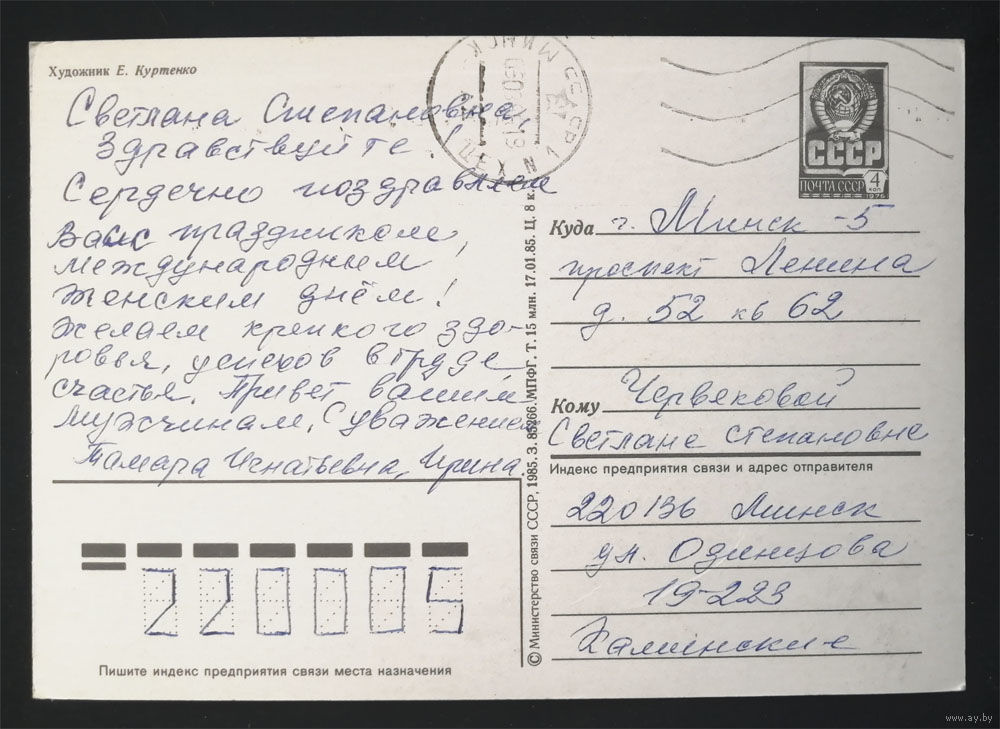 Художник Е. Куртенко
Светлана Степановна
Здравствуйте!
Сердечно поздравляем
Вас с праздником,
Международным
Женским днём!
Желаем крепкого здо-
ровья, успехов в труде
счастья. Привет вашим
мужчинам. С уважением
Тамара Игнатьевна, Ирина.
22005
Пишите индекс предприятия связи места назначения
© Министерство связи СССР, 1985. З. 85266. МПФГ. Т. 15 млн. 17.01.85. Ц. 8 к.
МИНСК
ЦЕХ N
ПОЧТА СССР
СССР
4
коп
1976
Куда г. Минск-5
проспект Ленина
д. 52 кв 62
Кому Червековой
Светлане Степановне
Индекс предприятия связи и адрес отправителя
220136 Минск
ул. Одинцова
19-223
Каминские
www.ay.by